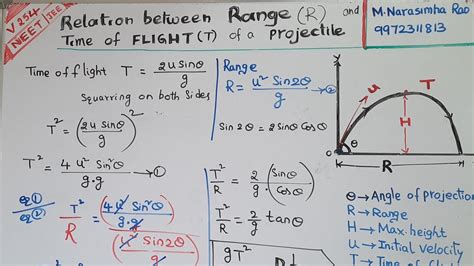 V 254
NEET JEE
Relation between Range (R) and
Time of FLIGHT (T) of a projectile
M. Narasimha Rao
9972311813
Time of flight T = 2u sinθ / g
Squarring on both Sides
T² = (2u sinθ / g)²
T² = 4 u² sin²θ / g.g → ①
eq① / eq② T² / R = (4 u² sin²θ / g.g) / (u² sin2θ / g)
Range
R = u² sin2θ / g → ②
Sin2θ = 2 sinθ cosθ
T² / R = 2/g (sinθ / cosθ)
T² / R = 2/g tanθ
gT²
u
T
H
θ
R
θ → Angle of projection
R → Range
H → Max. height
u → Initial velocity
T → Time of flight